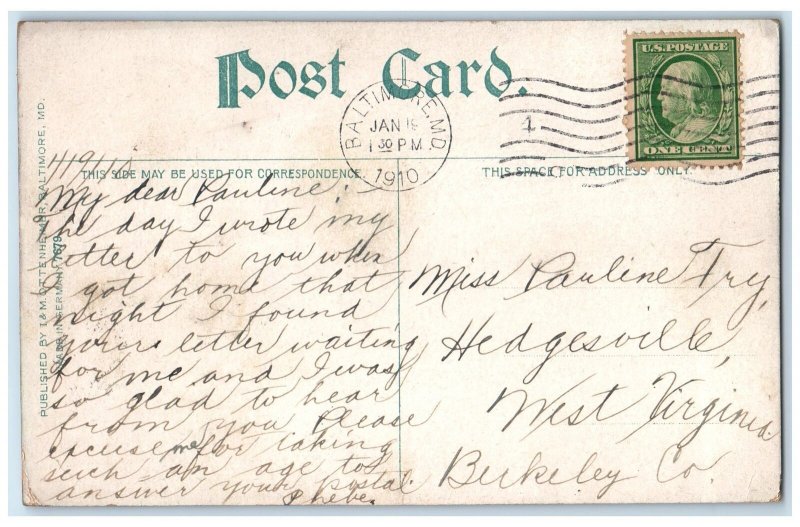 Post Card.
U.S. POSTAGE
ONE CENT
BALTIMORE, MD.
JAN 19
1 30 PM
1910
1
THIS SIDE MAY BE USED FOR CORRESPONDENCE.
THIS SPACE FOR ADDRESS ONLY.
PUBLISHED BY I & M. OTTENHEIMER, BALTIMORE, MD.
MADE IN GERMANY 7679
1/19/10
My dear Pauline:
he day I wrote my
etter to you when
I got home that
night I found
yours letter waiting
for me and I was
so glad to hear
from you Please
excuse me for taking
such an age to
answer your postal.
Phebe.
Miss Pauline Fry,
Hedgesville,
West Virginia.
Berkeley Co.